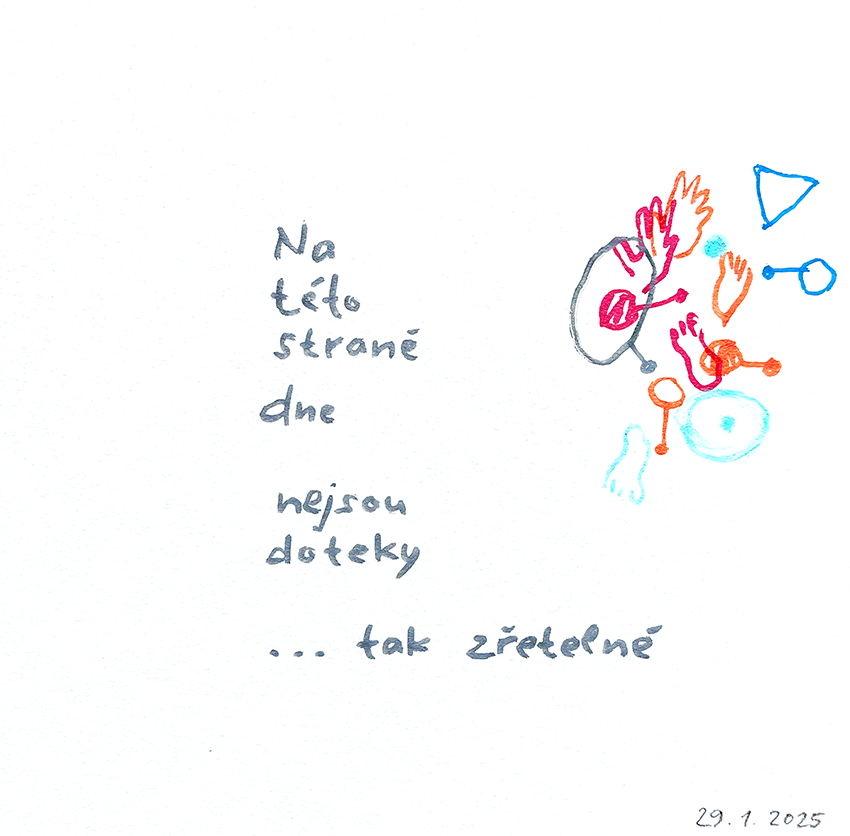 Na
této
straně
dne
nejsou
doteky
... tak zřetelné
29.1.2025